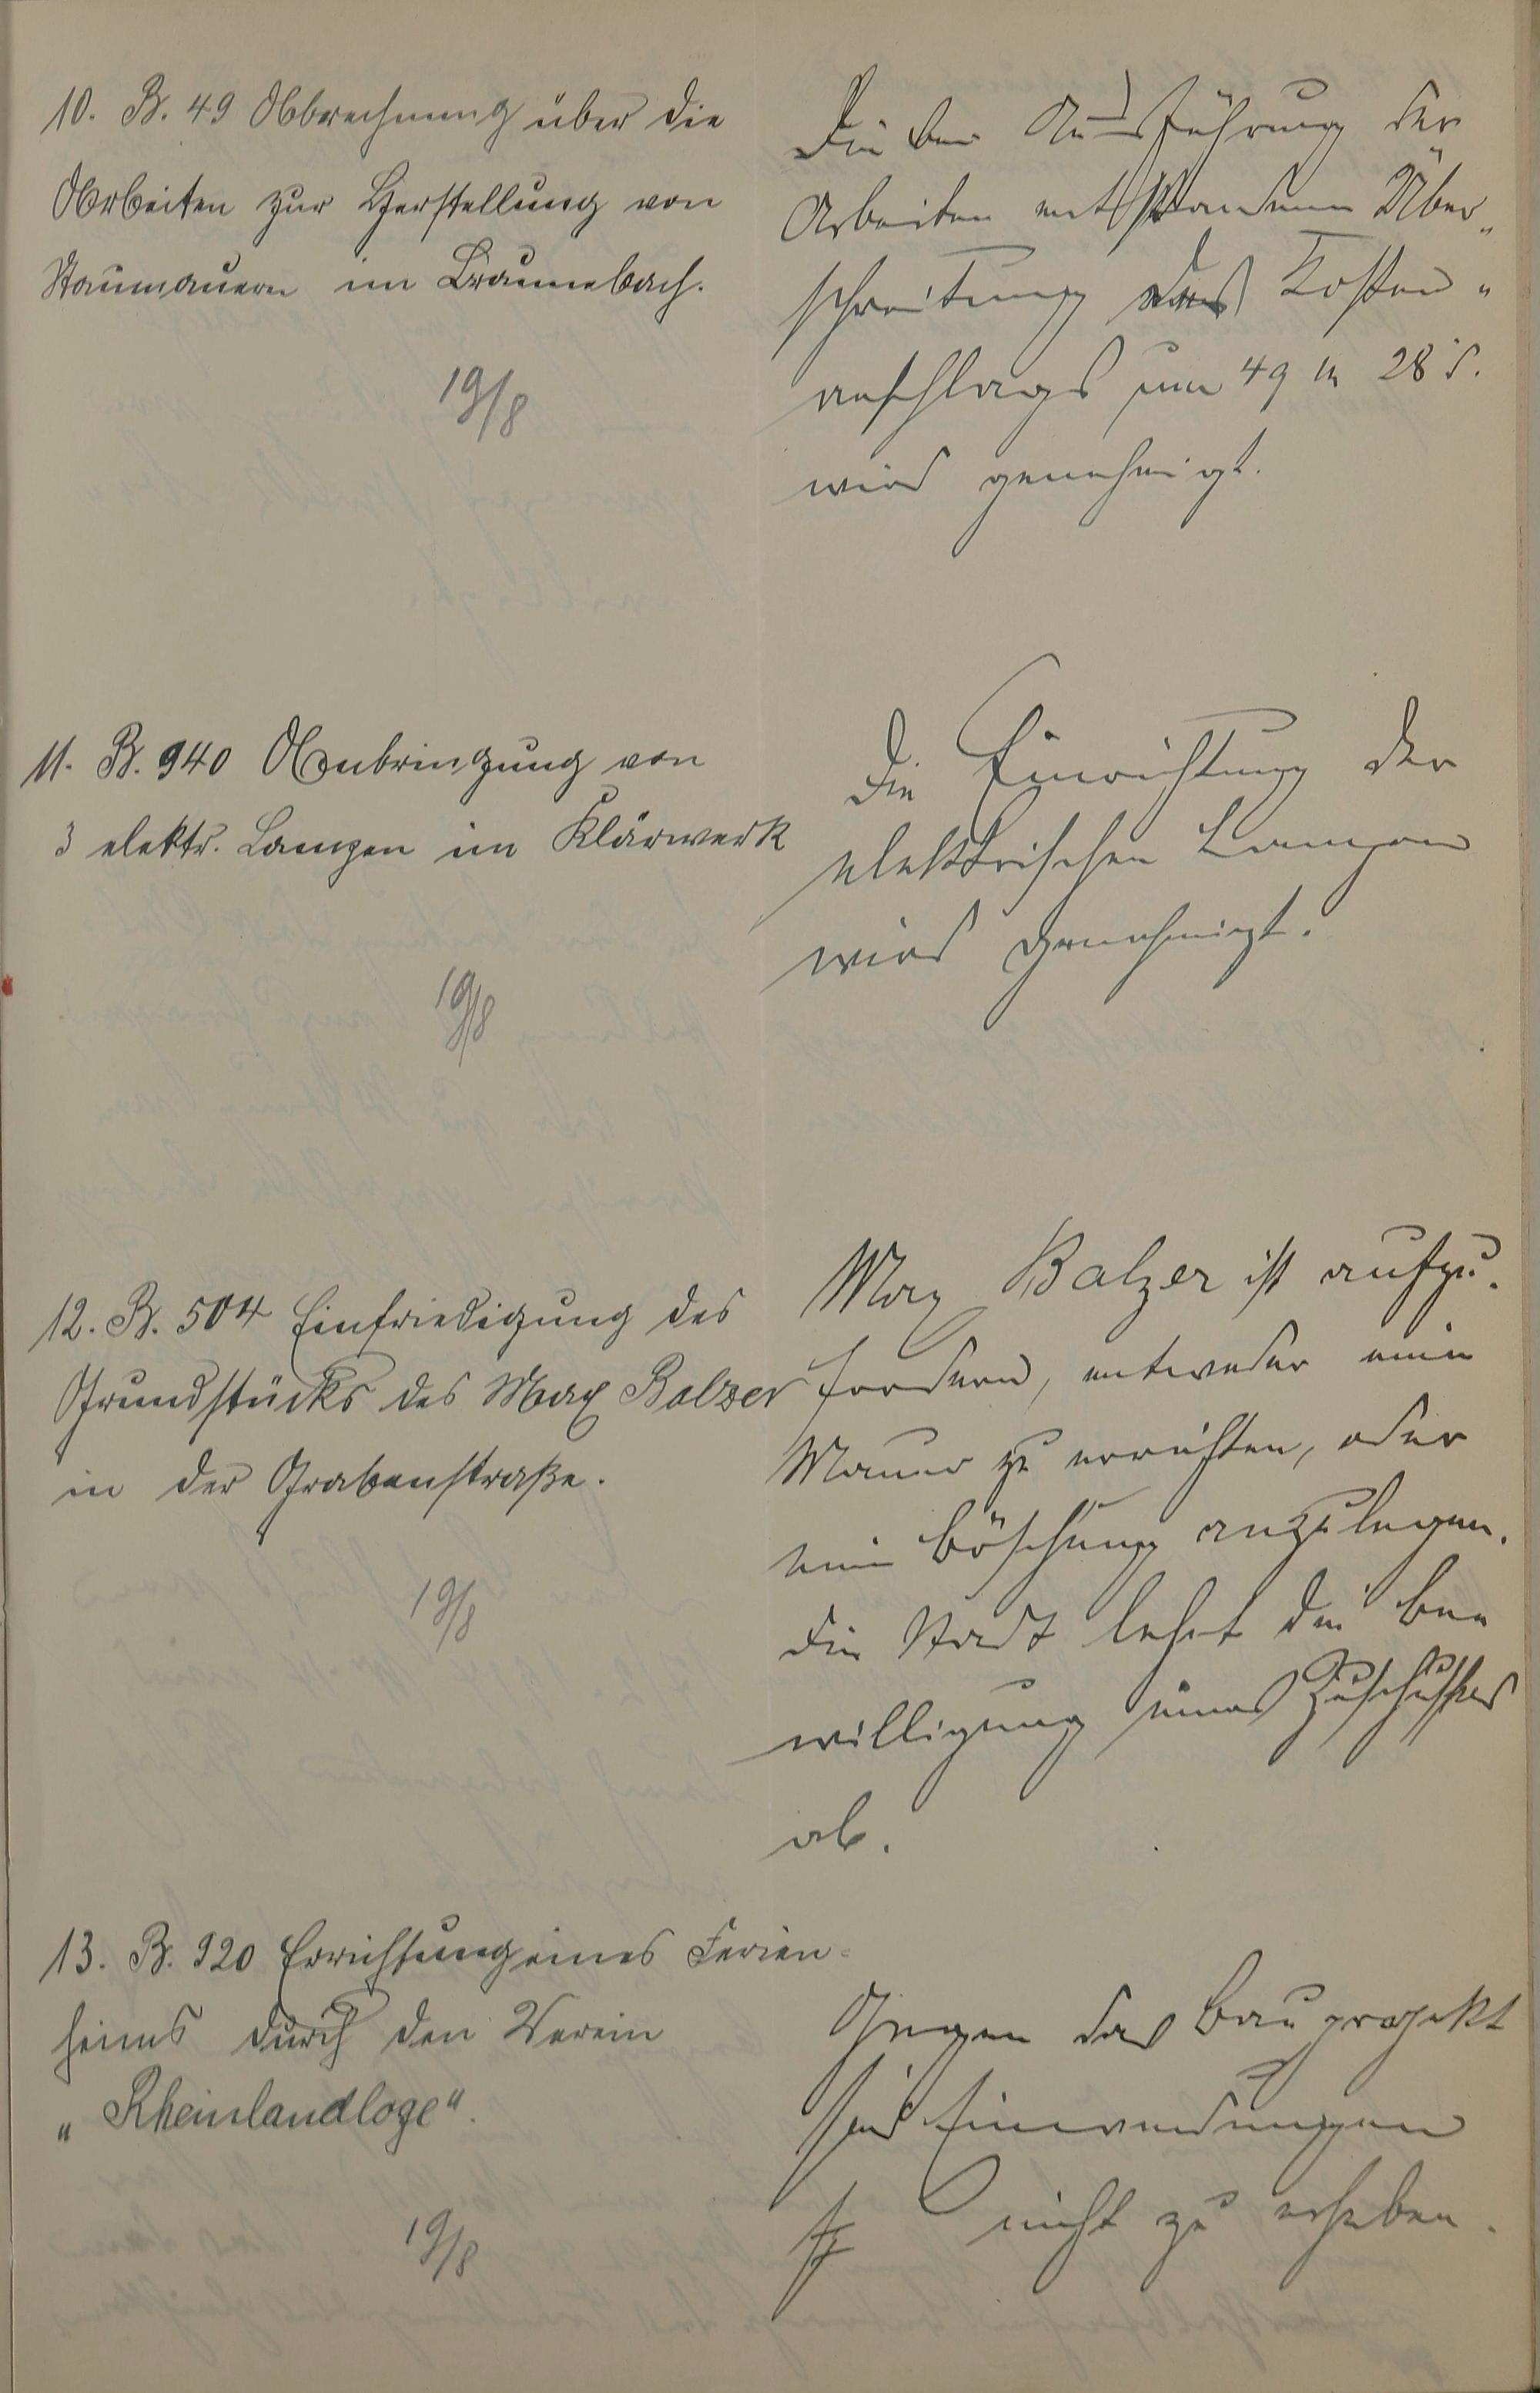 10. B. 49 Abbrechnung über die
Arbeiten zur Herstellung von
Staumauern im Braunebach.
19/8
Die bei Ausführung der
Arbeiten entstandene Über„
schreitung des Kosten„
anschlags um 49 M 28 S.
wird genehmigt.
11. B. 940 Anbringung von
3 elektr. Lampen im Klärwerk
19/8
Die Einrichtung der
elektrischen Lampen
wird genehmigt.
12. B. 504 Einfriedigung des
Grundstücks des Max Balzer
in der Grabenstraße.
19/8
Max Balzer ist aufzu-
fordern, entweder eine
Mauer zu errichten, oder
eine Böschung anzulegen.
Die Stadt lehnt die Be
willigung eines Zuschusses
ab.
13. B. 920 Errichtung eines Ferien=
heims durch den Verein
„Rheinlandloge“.
19/8
Gegen das Bauprojekt
sind Einwendungen
nicht zu erheben.